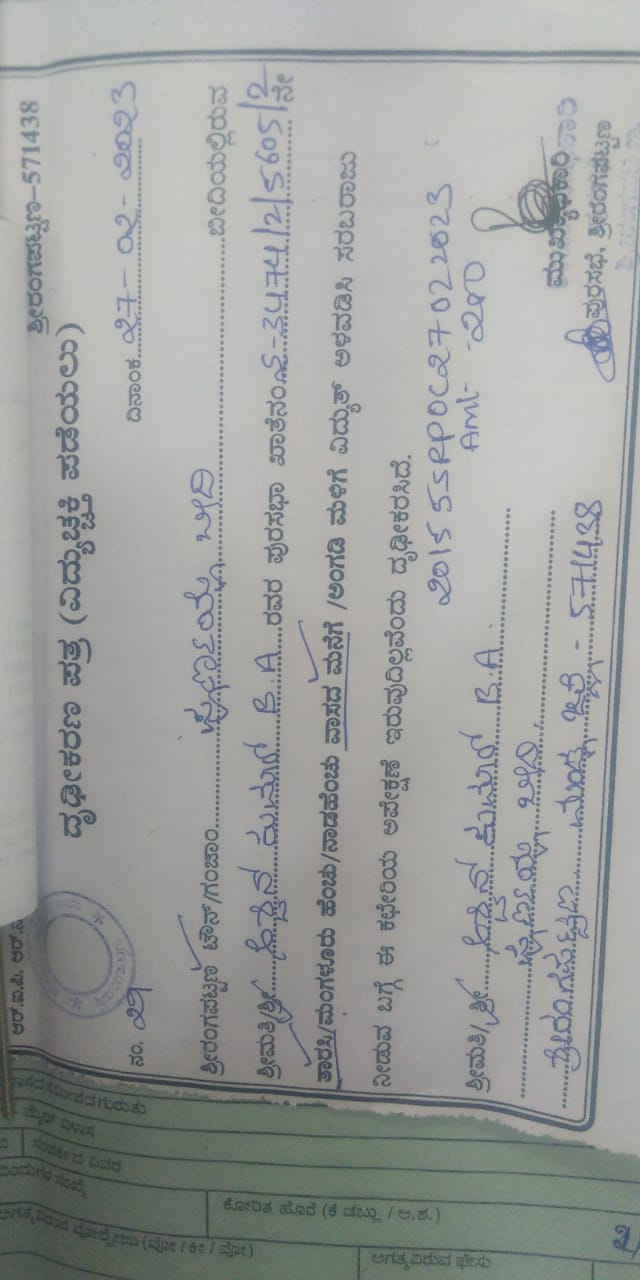 ಆರ್.ಐ.ಪಿ. ಆರ್.
ಶ್ರೀರಂಗಪಟ್ಟಣ–571438
ದೃಢೀಕರಣ ಪತ್ರ (ವಿದ್ಯುಚ್ಛಕ್ತಿ ಪಡೆಯಲು)
ನಂ. 29
ದಿನಾಂಕ 27-02-2023
ಶ್ರೀರಂಗಪಟ್ಟಣ ಟೌನ್/ಗಂಜಾಂ ಪೂರ್ಣಯ್ಯ ಬೀದಿ ಬೀದಿಯಲ್ಲಿರುವ
ಶ್ರೀಮತಿ/ಶ್ರೀ ಕುಮಾರ್ B.A ರವರ ಪುರಸಭಾ ಖಾತೆನಂ 3474/2/5605/2 ನೇ
ತಾರಸಿ/ಮಂಗಳೂರು ಹೆಂಚು/ನಾಡಹೆಂಚು ವಾಸದ ಮನೆಗೆ /ಅಂಗಡಿ ಮಳಿಗೆ ವಿದ್ಯುತ್ ಅಳವಡಿಸಿ ಸರಬರಾಜು
ನೀಡುವ ಬಗ್ಗೆ ಈ ಕಛೇರಿಯ ಆಪೇಕ್ಷಣೆ ಇರುವುದಿಲ್ಲವೆಂದು ದೃಢೀಕರಿಸಿದೆ.
Amt- 200
ಶ್ರೀಮತಿ/ಶ್ರೀ ಕುಮಾರ್ B.A.
ಬೀದಿ
ಶ್ರೀರಂಗಪಟ್ಟಣ ಮಂಡ್ಯ ಜಿಲ್ಲೆ - 571438
ಮುಖ್ಯಾಧಿಕಾರಿ
ಪುರಸಭೆ, ಶ್ರೀರಂಗಪಟ್ಟಣ
ಗುರುತು
ಮೈಲ್ ವಿಳಾಸ
ಸಂಪರ್ಕದ ವಿವರ
ಕೋರಿತ ಹೊರೆ (ಕೆ ಡಬ್ಲು / ಅ.ಶ.)
ಅಗತ್ಯವಿರುವ ವೋಲ್ಟೇಜು
ಅಗತ್ಯವಿರುವ ಫೇಸು